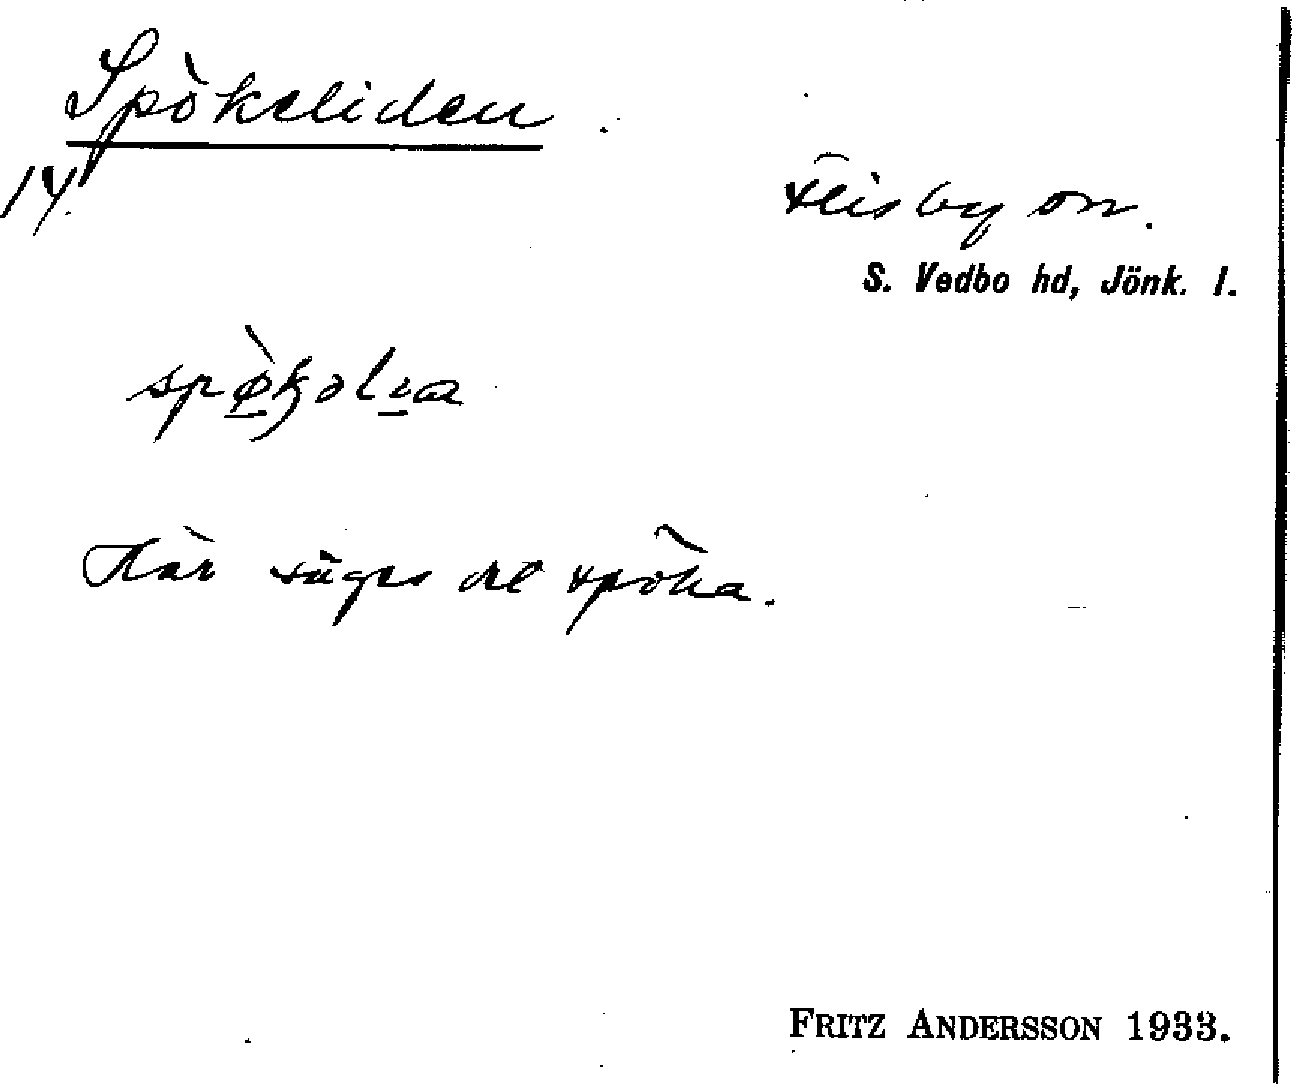 Spökeliden
14.
Flisby sn.
S. Vedbo hd, Jönk. l.
spø̀kəlia
Här säges det spöka.
FRITZ ANDERSSON 1933.